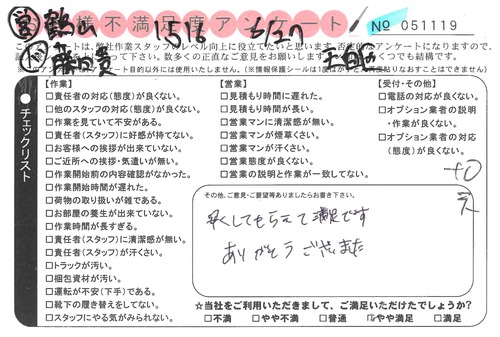 営 鶴山 1516 5/27
様不満足度アンケート
№ 051119
【作業】
□責任者の対応(態度)が良くない。
□他のスタッフの対応(態度)が良くない。
□作業を見ていて不安がある。
□責任者(スタッフ)に好感が持てない。
□お客様への挨拶が出来ていない。
□ご近所への挨拶・気遣いが無い。
□作業開始前の内容確認がなかった。
□作業開始時間が遅れた。
□荷物の取り扱いが雑である。
□お部屋の養生が出来ていない。
□作業時間が長すぎる。
□責任者(スタッフ)に清潔感が無い。
□責任者(スタッフ)が汗くさい。
□トラックが汚い。
□梱包資材が汚い。
□運転が不安(下手)である。
□靴下の履き替えをしてない。
□スタッフにやる気がみられない。
【営業】
□見積もり時間に遅れた。
□見積もり時間が長い。
□営業マンに清潔感が無い。
□営業マンが煙草くさい。
□営業マンが汗くさい。
□営業態度が良くない。
□営業の説明と作業が一致してない。
【受付・その他】
□電話の対応が良くない。
□オプション業者の説明
・作業が良くない。
□オプション業者の対応
(態度)が良くない。
チェックリスト
その他、ご意見・ご要望等ありましたらお書き下さい。
早くしてもらえて満足です
ありがとうございました
☆当社をご利用いただきまして、ご満足いただけたでしょうか?
□不満 □やや不満 □普通 □やや満足 □満足